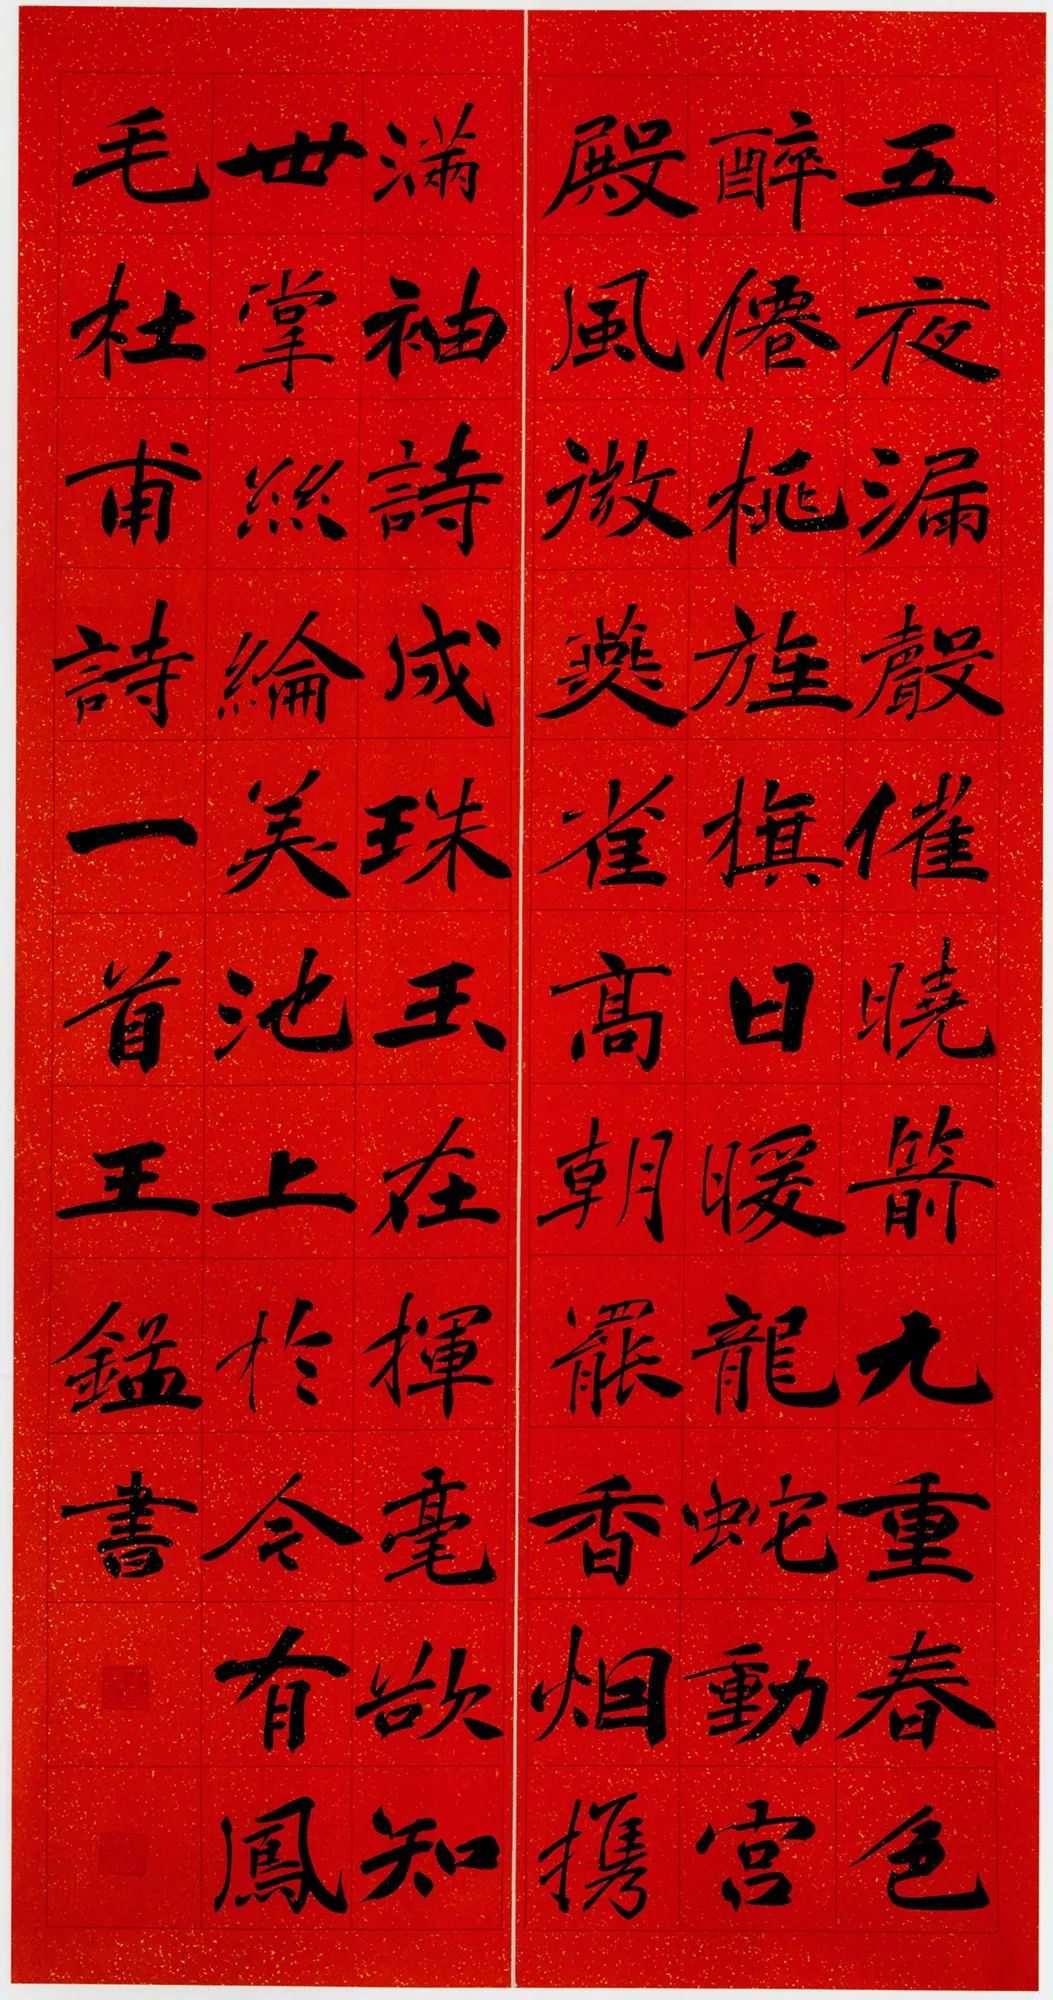 五夜漏聲催曉箭九重春色
醉僊桃旌旗日暖龍蛇動宮
殿風微燕雀高朝罷香烟携
滿袖詩成珠玉在揮毫欲知
世掌絲綸美池上於今有鳳
毛杜甫詩一首王鎰書